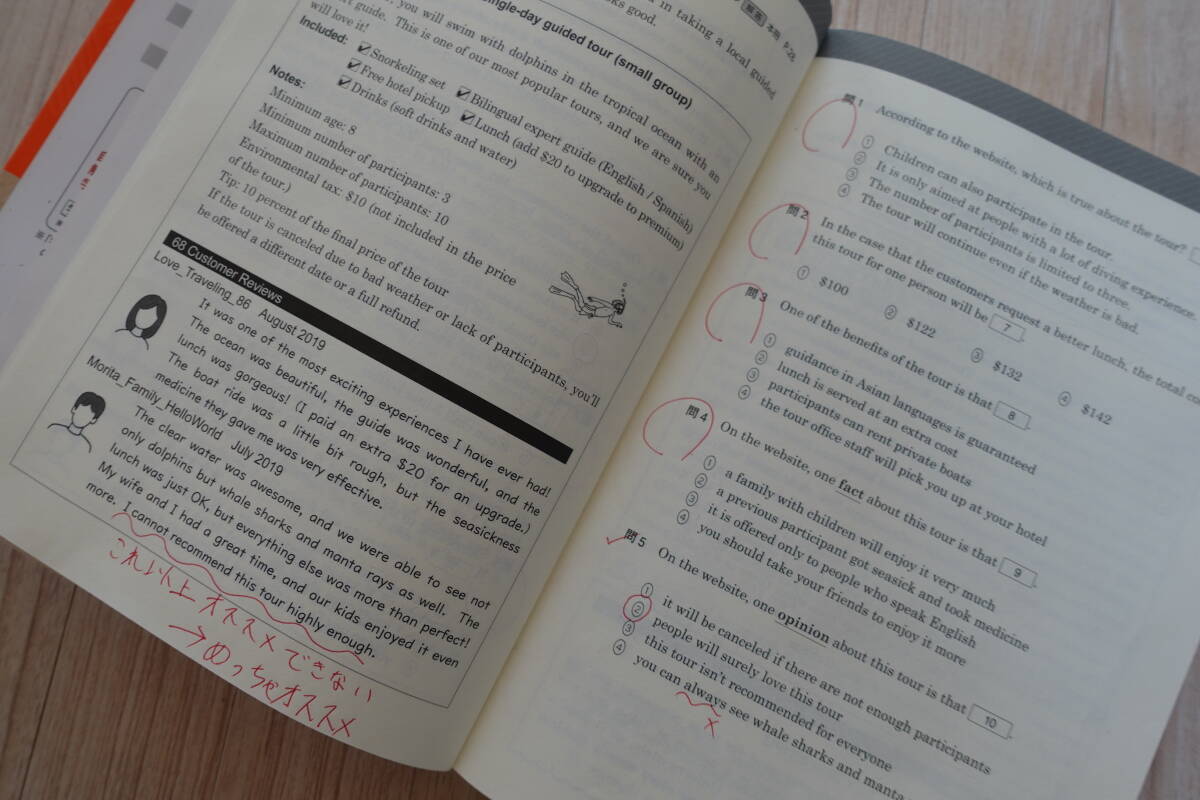 in taking a local guided,
ks good.
英語 本冊 P.28
single-day guided tour (small group)
you will swim with dolphins in the tropical ocean with an
guide. This is one of our most popular tours, and we are sure you
will love it!
Included:
Snorkeling set
Bilingual expert guide (English / Spanish)
Free hotel pickup
Lunch (add $20 to upgrade to premium)
Drinks (soft drinks and water)
Notes:
Minimum age: 8
Minimum number of participants: 3
Maximum number of participants: 10
Environmental tax: $10 (not included in the price
of the tour.)
Tip: 10 percent of the final price of the tour
If the tour is canceled due to bad weather or lack of participants, you'll
be offered a different date or a full refund.
68 Customer Reviews
Love_Traveling_86 August 2019
It was one of the most exciting experiences I have ever had!
The ocean was beautiful, the guide was wonderful, and the
lunch was gorgeous! (I paid an extra $20 for an upgrade.)
The boat ride was a little bit rough, but the seasickness
medicine they gave me was very effective.
Morita_Family_HelloWorld July 2019
The clear water was awesome, and we were able to see not
only dolphins but whale sharks and manta rays as well. The
lunch was just OK, but everything else was more than perfect!
My wife and I had a great time, and our kids enjoyed it even
more. I cannot recommend this tour highly enough.
これ以上オススメできない
→めっちゃオススメ
問1 According to the website, which is true about the tour?
① Children can also participate in the tour.
② It is only aimed at people with a lot of diving experience.
③ The number of participants is limited to three.
④ The tour will continue even if the weather is bad.
問2 In the case that the customers request a better lunch, the total co
this tour for one person will be 7 .
① $100 ② $122 ③ $132 ④ $142
問3 One of the benefits of the tour is that 8 .
① guidance in Asian languages is guaranteed
② lunch is served at an extra cost
③ participants can rent private boats
④ the tour office staff will pick you up at your hotel
問4 On the website, one fact about this tour is that 9 .
① a family with children will enjoy it very much
② a previous participant got seasick and took medicine
③ it is offered only to people who speak English
④ you should take your friends to enjoy it more
問5 On the website, one opinion about this tour is that 10 .
① it will be canceled if there are not enough participants
② people will surely love this tour
③ this tour isn't recommended for everyone
④ you can always see whale sharks and manta
×